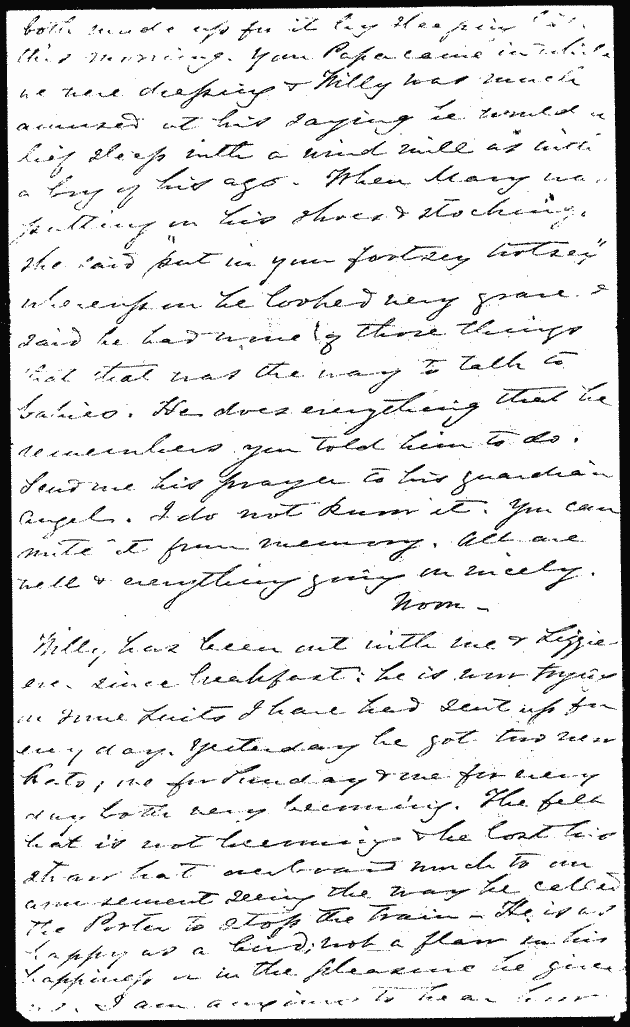 both made up for it by sleeping late
this morning. Your Papa came in while
we were dressing & Willy was much
amused at his saying he would as
lief sleep with a wind mill as with
a boy of his age. When Mary was
putting on his shoes & stockings
she said "put in your footsey tootsey"
whereupon he looked very grave &
said he had none of those things
that that was the way to talk to
babies. He does everything that he
remembers you told him to do.
Send me his prayer to his guardian
angel. I do not know it. You can
write it from memory. All are
well & everything going on nicely.
Noon -
Willy has been out with me & Lizzie
ever since breakfast: he is now trying
on some suits I have had sent up for
every day. Yesterday he got two new
hats, one for Sunday & one for every
day both very becoming. The felt
hat is not becoming & he lost his
straw hat overboard much to our
amusement seeing the way he called
the Porter to stop the train - He is as
happy as a bird; not a flaw in his
happiness or in the pleasure he gives
us. I am anxious to hear how